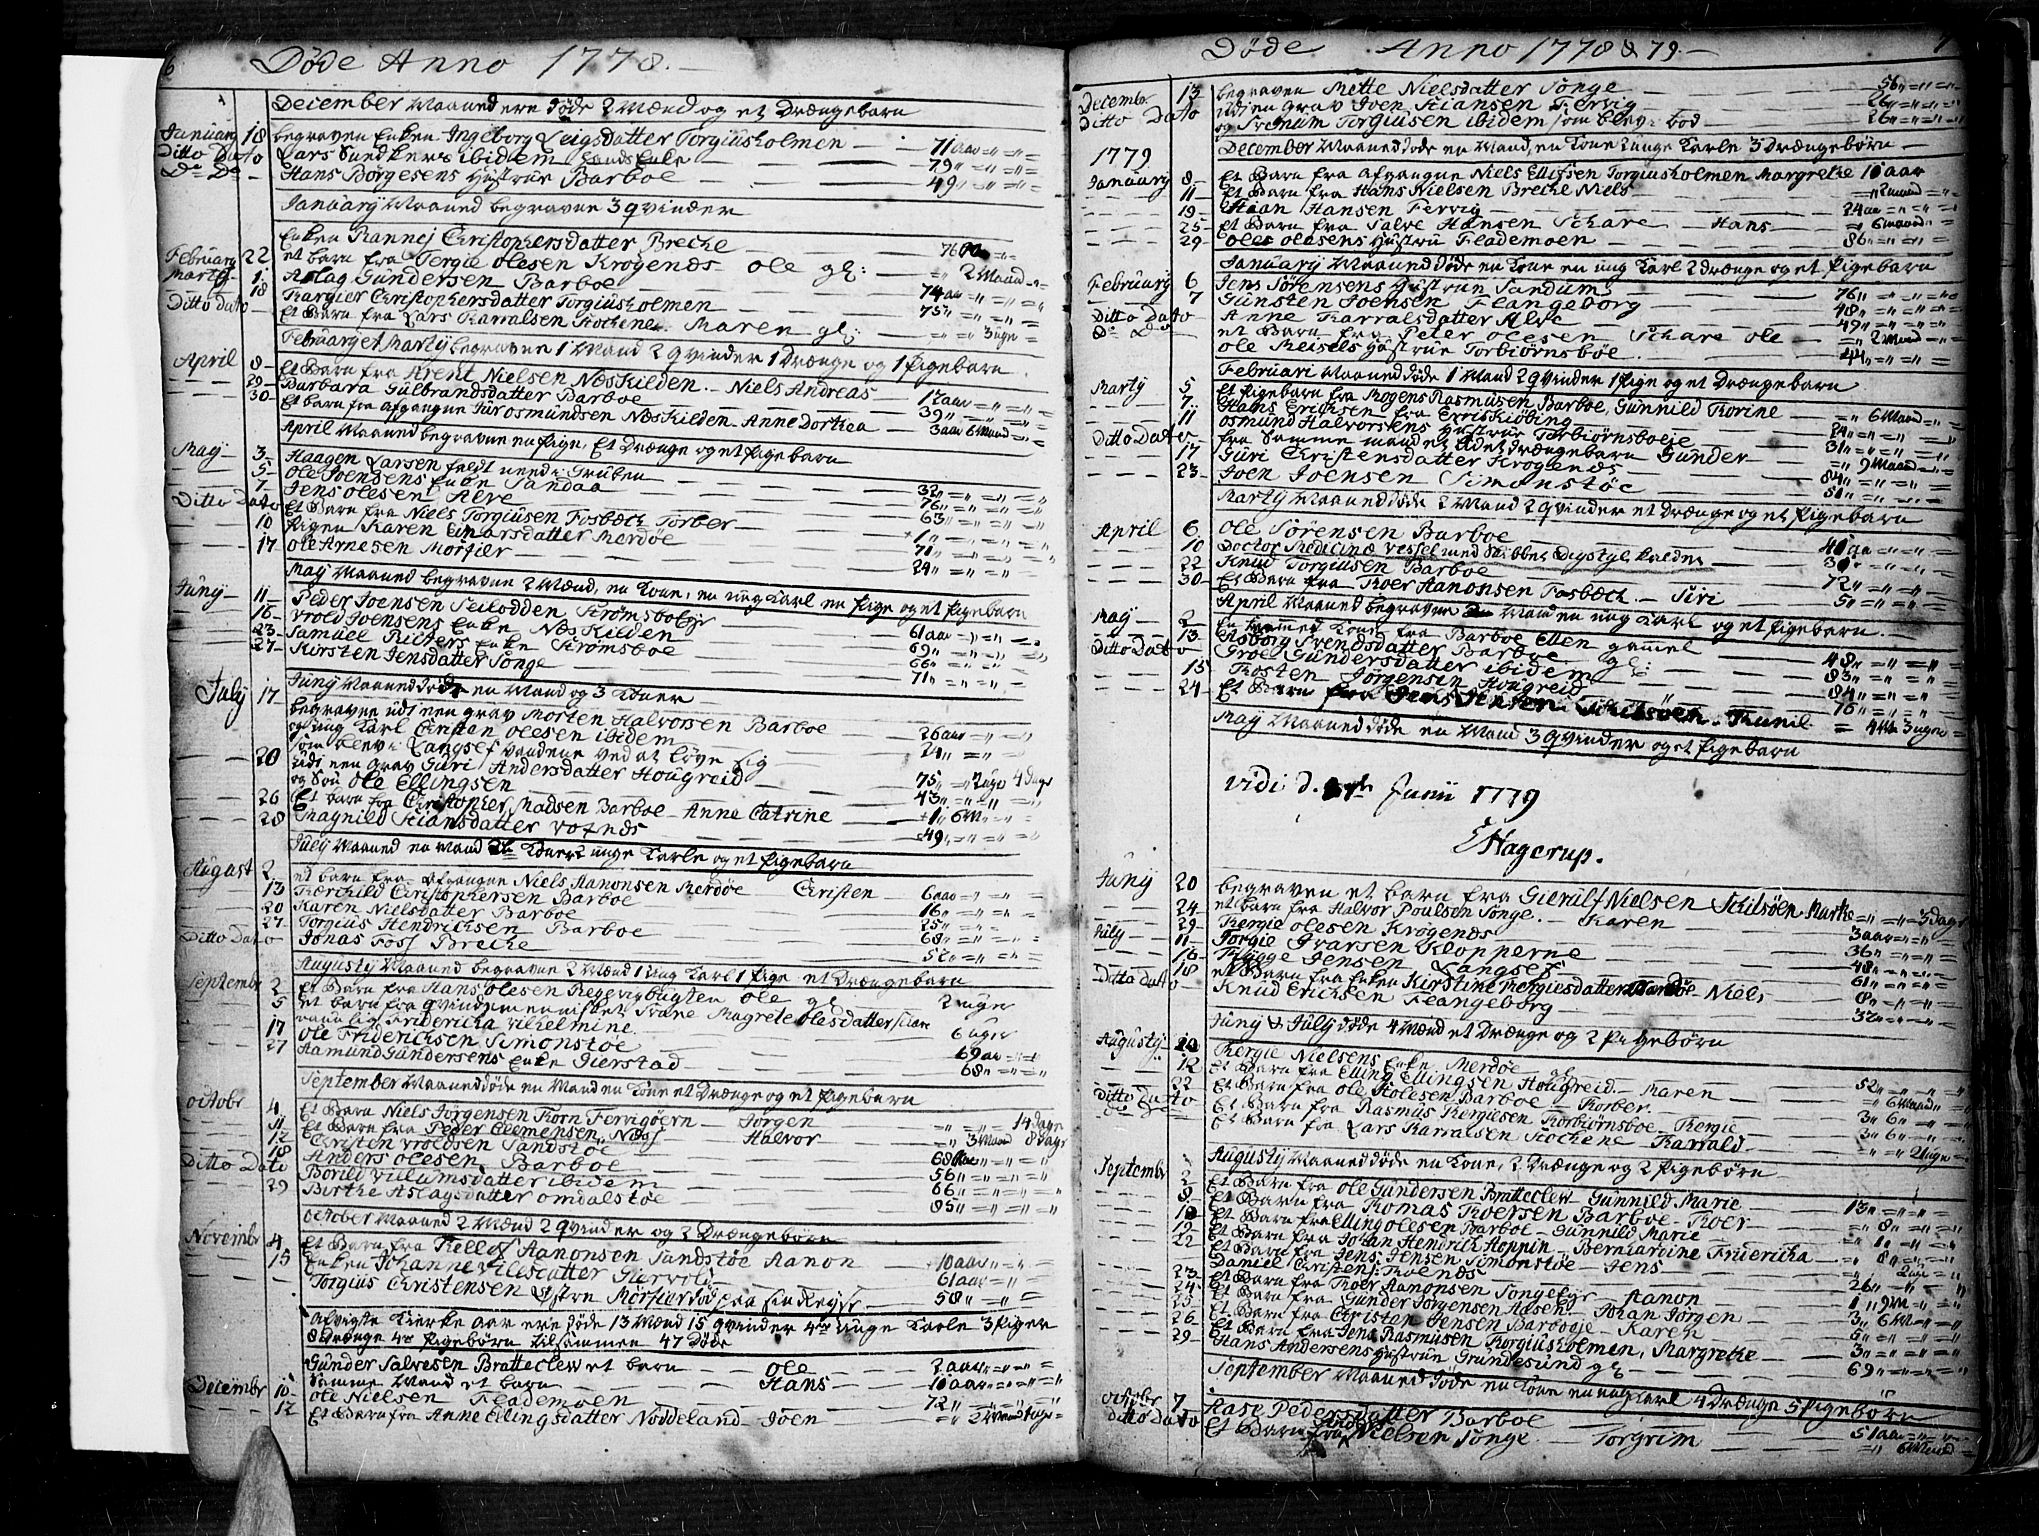 6
Døde Anno 1778.
December Maaned ere døde 2 Mænd og et Drængebarn
January 18 begraven Enken Ingeborg Leigsdatter Torgiusholmen 71 aar
Ditto Dato Lars Sundkers ibidem Enke 79
Do Do Hans Børgesens Hustrue Barboe 49
January Maaned begravne 3 qvinder
Enken Rannej Christophersdatter Breche 76
February 22 et barn fra Tergie Olesen Krøgenes Ole gl: 2 Maand
Marty 1 Aslag Gundersen Barboe 74 aar
18 Kargier Christophersdatter Torgiusholmen 75
Ditto Dato Et Barn fra Lars Karralsen Kochene Maren gl: 3 uge
Februarg et Marty begravne 1 Mand 2 qvinder 1 Drænge og 1 Pigebarn
April 8 Et Barn fra Arent Nielsen Næskilden Niels Andreas
29 Barbara Gulbrandsdatter Barboe 17 aar
30 Et barn fra afgangne Siur Osmundsen Næskilden Anne Dorthea 39
3 aar 6 Maand
April Maaned begravne en Pige, Et Drænge og et Pigebarn
May 3 Haagen Larsen feldt ned i Gruben
5 Ole Joensens Enke Sandaa 32
7 Jens Olesen Alve 76
Ditto Dato Et Barn fra Niels Torgiusen Fosbæch Torber 63
10 Pigen Karen Einarsdatter Merdøe 1
17 Ole Arnesen Morfier 71
24
May Maaned begravne 2 Mænd, en Kone, en ung Karl en Pige og et Pigebarn
Juny 11 Peder Joensen Seilodden Strømsboe
16 Vrold Joensens Enke Næskilden 61 aar
23 Samuel Ruters Enke Strømsboe 69
27 Kirsten Jensdatter Songe 66
71
Juny Maaned døde en Mand og 3 Koner
July 17 begraven udi een grav Morten Halvorsen Barboe
og ung Karl Ensten Olesen ibidem 26 aar
som blev i Langsef vandene ved at løye sig 24
20 udi een grav Guri Andersdatter Hougreid
og Søn Ole Ellingsen 75 2 uge 4 dage
26 Et barn fra Christopher Madsen Barboe Anne Catrine 43
28 Magnild Kiansdatter Voxnes 1 6 M
49
July Maaned en Mand Koner 2 unge Karle og et Pigebarn
August 2 et barn fra afgangne Niels Aanonsen Merdøe Christen 6 aar
13 Kærchild Christophersen Barboe
20 Karen Nielsdatter Barboe 16
27 Torgius Hendrichsen Barboe 25
Ditto Dato Jonas Foss Breche 68
52
Augusty Maaned begravne 2 Mænd 1 ung Karl 1 Pige et Drængebarn
Septembr 2 Et Barn fra Hans Olesen Regevigbugten Ole gl 2 uger
5 et barn fra qvindemennisket Svane Magrete Olesdatter
Friderica Vilhelmine 6 uger
17 Ole Friderichsen Simonstøe
27 Aamund Gundersens Enke Gierstad 69 aar
68
September Maaned døde en Mand en Kone et Drænge og et Pigebarn
Octobr 4 Et Barn Niels Jørgensen Korn Ferrigøern Jørgen 14 dage
11 Et Barn fra Peder Clemensen Næss Halvor 3 Maand 8 dage
12 Christen Vroldsen Sandstøe
18 Anders Olesen Barboe 68
Ditto Dato Borild Villumsdatter ibidem 56
29 Birthe Aslagsdatter Omdalstøe 66
85
October Maaned 2 Mænd 2 qvinder og 2 Drængebørn
Novembr 4 Et Barn fra Kellof Aanonsen Sandstøe Aanon 10 aar
15 Enken Johanne Nilsdatter Giervold 61 aar
Torgius Christensen Morfier død paa sin Reyse 58
Afvigte Kierke aar ere døde 13 Mænd 15 qvinder 4re unge Karle 3 Piger
8 Drænge 4re Pigebørn tilsammen 47 Døde
Gunder Salvesen Bratteclew et barn Ole 2 aar
Samme Mand et barn Hans 10 aar
Decembr 10 Ole Nielsen Flademoen 72
12 Et Barn fra Anne Ellingsdatter Nøddeland Joen 2 Maand
7
Døde Anno 1778 & 79
Decembr 13 begraven Mette Nielsdatter Songe 56
Ditto Dato Udi en grav Joen Kiansen Fervig 26
og Torgiusen ibidem som blev bod 26
December Maaned døde en Mand, en Kone 2 unge Karle 3 Drængebørn
1779
January 8 Et Barn fra afgangne Niels Ellefsen Torgiusholmen Margrethe 10 aar
11 Et Barn fra Hans Nielsen Breche Niels 2 maand
19 Kiaan Hansen Fervig 24 aar
25 Et Barn fra Salve Hansen Schare Hans 6 maand
29 Oles Olesens Hustrue Flademoen 86
January Maaned døde en Kone en ung Karl 2 drænge og et Pigebarn
February 6 Jens Sørensens Hustrue Sandum 76
7 Gunsten Joensen Flangeborg 48
Ditto Dato Anne Karralsdatter Alve 49
Do Do et Barn fra Peter Olesen Schare Ole 2 Maand
Ole Meisels Hustrue Torbiørnsbøe 44
Februari Maaned døde 1 Mand 2 qvinder 1 Pige og et Drængebarn
Marty 5 Et Pigebarn fra Mogens Rasmussen Barboe, Gunnild Torine 6 Maand
7 Hans Erichsen fra Erriskiøbing 24
11 Osmund Halvorsens Hustrue Torbiørnsboeje 31
Ditto Dato fra Samme mand et lidet drængebarn Gunder 9 Maand
17 Guri Christensdatter Krøgenes 84
23 Joen Joensen Simonstøe 51
Marty Maaned døde 2 Mand 2 qvinder et Drænge og et Pigebarn
April 6 Ole Sørensen Barboe
10 Doctor Medicinæ Vessel med Skibber Dystyl 40 aar
22 Knud Torgiusen Barboe 30
30 Et Barn fra Thoer Aanonsen Fosbæch Siri 72
5
April Maaned begravne Mænd en ung Karl og et Pigebarn.
May 2 En Kone fra Barboe Ellen gamel
13 Asborg Svendsdatter Barboe 48
Ditto Dato Groe Gundersdatter ibidem gl: 83
15 Thosten Jørgensen Hougreid 84
24 Et Barn fra Jens Jensen Schilsøen Thunil 76
4 M 3 ugen
May Maaned døde en Mand 3 qvinder og et Pigebarn
Vidi d. Junii 1779
E Hagerup.
Juny 20 begraven et barn fra Gierulf Nielsen Schilsøen Marthe 3 Dage
24 et barn fra Halvor Poulsen Songe Karen
29 Tergie Olesen Krøgenes 3 aar
July 11 Torgie Ivarsen Klopperne 36
16 Trygge Jensen Langsef 48
18 et Barn fra Enken Kirstine Tergiesdatter Niels 61
Ditto Dato Knud Erichsen Flangeborg 8
32
Juny & July døde 4 Mænd et Drænge og 2 Pigebørn
Augusty 10 Tergie Nielsens Enke Merdøe gl
12 Et Barn fra Elling Ellingsen Hougreid Maren 52
22 Et Barn fra Ole Holesen Barboe Torber 6 Maand
Ditto Dato Et Barn fra Rasmus Tergiesen Torbiørnsboe Tergie 3 6
Et Barn fra Lars Karralsen Kochene Karrald 3 6
2 uge
Augusty Maaned døde en Kone, 2 Drænge og 2 Pigebørn
Septembr 2 Et Barn fra Ole Gundersen Bratteclew Gunnild Marie
8 Et Barn fra Thomas Thoersen Barboe Thoer 13
10 Et Barn fra Elling Olesen Barboe Gunnild Marie 8
12 Et Barn fra Johan Hendrik Hoppin Bernhardine Friderica 1
22 Et Barn fra Jens Jensen Simonstøe Jens 8
Daniel Christens: Thoenes 2 uge
23 Et Barn fra Thoer Aanonsen Songe Aanon 26
24 Et Barn fra Gunder Jørgensen Aasen Johan Jørgen 1 9 M
25 Et Barn fra Christen Jensen Barboeje Karen 3 6 M
26 Et Barn fra Jens Rasmusen Torgiusholmen, Margrethe 5
29 Hans Andersens Hustrue Grundesund gl 3
69
September Maaned døde en Kone en ung Karl 4 Drænge 5 Pigebørn
Octobr 7 Aase Pedersdatter Barboe 51 aar
Ditto Dato Et Barn fra Nielsen Songe Torgrim 6 Maand